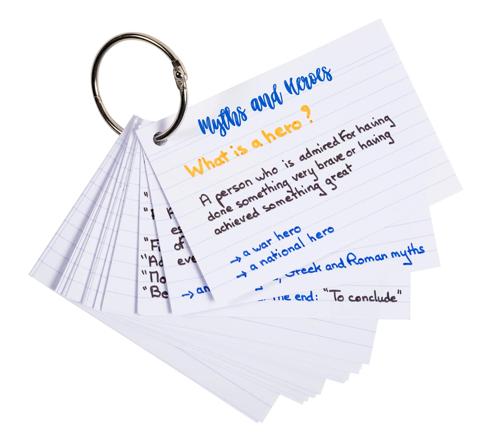 Myths and Heroes
What is a hero?
A person who is admired For having
done something very brave or having
achieved something great
→ a war hero
→ a national hero
→ an
Greek and Roman myths
the end: "To conclude"